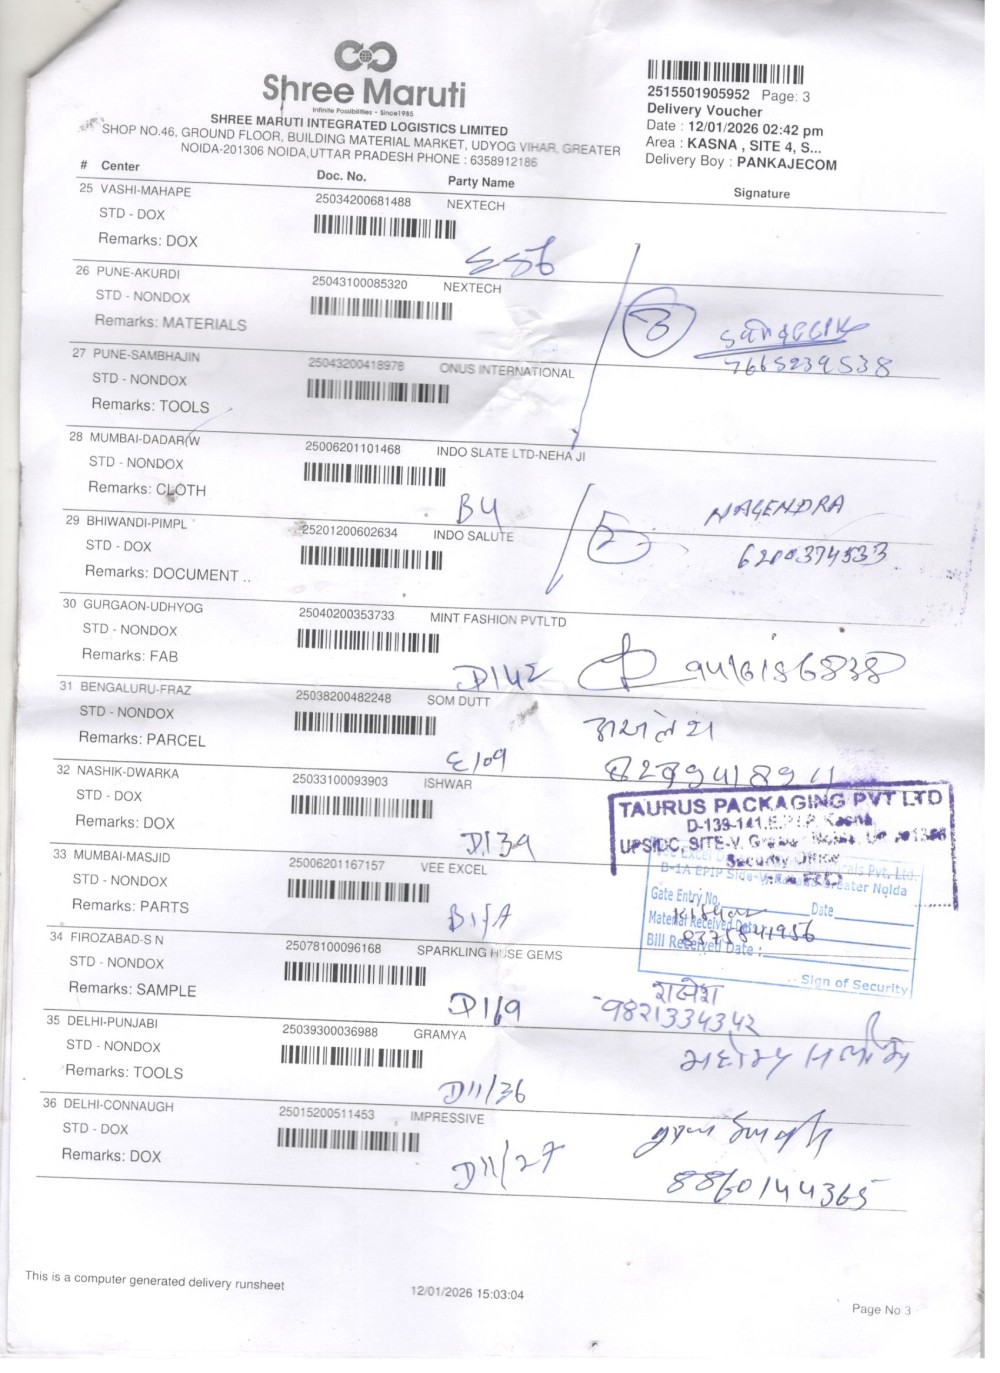 Shree Maruti
Infinite Possibilities - Since1985
SHREE MARUTI INTEGRATED LOGISTICS LIMITED
SHOP NO.46, GROUND FLOOR, BUILDING MATERIAL MARKET, UDYOG VIHAR, GREATER
NOIDA-201306 NOIDA,UTTAR PRADESH PHONE : 6358912186
2515501905952 Page: 3
Delivery Voucher
Date : 12/01/2026 02:42 pm
Area : KASNA , SITE 4, S...
Delivery Boy : PANKAJECOM
# Center Doc. No. Party Name Signature
25 VASHI-MAHAPE 25034200681488 NEXTECH
STD - DOX
Remarks: DOX
26 PUNE-AKURDI 25043100085320 NEXTECH
STD - NONDOX
Remarks: MATERIALS
3
7665239538
27 PUNE-SAMBHAJIN 25043200418978 ONUS INTERNATIONAL
STD - NONDOX
Remarks: TOOLS
28 MUMBAI-DADAR(W 25006201101468 INDO SLATE LTD-NEHA JI
STD - NONDOX
Remarks: CLOTH
B4
NAGENDRA
29 BHIWANDI-PIMPL 25201200602634 INDO SALUTE
STD - DOX
Remarks: DOCUMENT ..
2
6200374533
30 GURGAON-UDHYOG 25040200353733 MINT FASHION PVTLTD
STD - NONDOX
Remarks: FAB
D142
31 BENGALURU-FRAZ 25038200482248 SOM DUTT
STD - NONDOX
Remarks: PARCEL
E109
32 NASHIK-DWARKA 25033100093903 ISHWAR
STD - DOX
Remarks: DOX
D139
TAURUS PACKAGING PVT LTD
D-139-141, E.P.I.P. Kasna
UPSIDC, SITE-V,
Security Office
33 MUMBAI-MASJID 25006201167157 VEE EXCEL
STD - NONDOX
Remarks: PARTS
B1/A
Pvt. Ltd.
Gate Entry No. Date
Kishan
Material Received
8375841956
Bill Received Date :
Sign of Security
34 FIROZABAD-S N 25078100096168 SPARKLING HUSE GEMS
STD - NONDOX
Remarks: SAMPLE
D169
राजेश
9821334342
35 DELHI-PUNJABI 25039300036988 GRAMYA
STD - NONDOX
Remarks: TOOLS
D11/36
36 DELHI-CONNAUGH 25015200511453 IMPRESSIVE
STD - DOX
Remarks: DOX
D11/27
8860144365
This is a computer generated delivery runsheet
12/01/2026 15:03:04
Page No 3